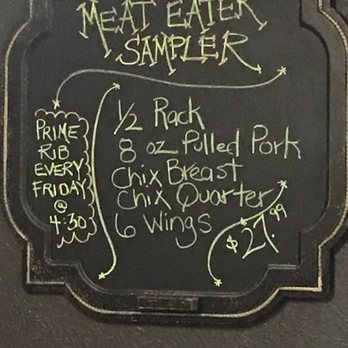 MEAT EATER
SAMPLER
1/2 Rack
8 oz Pulled Pork
Chix Breast
Chix Quarter
6 Wings
$27.99
PRIME
RIB
EVERY
FRIDAY
@
4:30